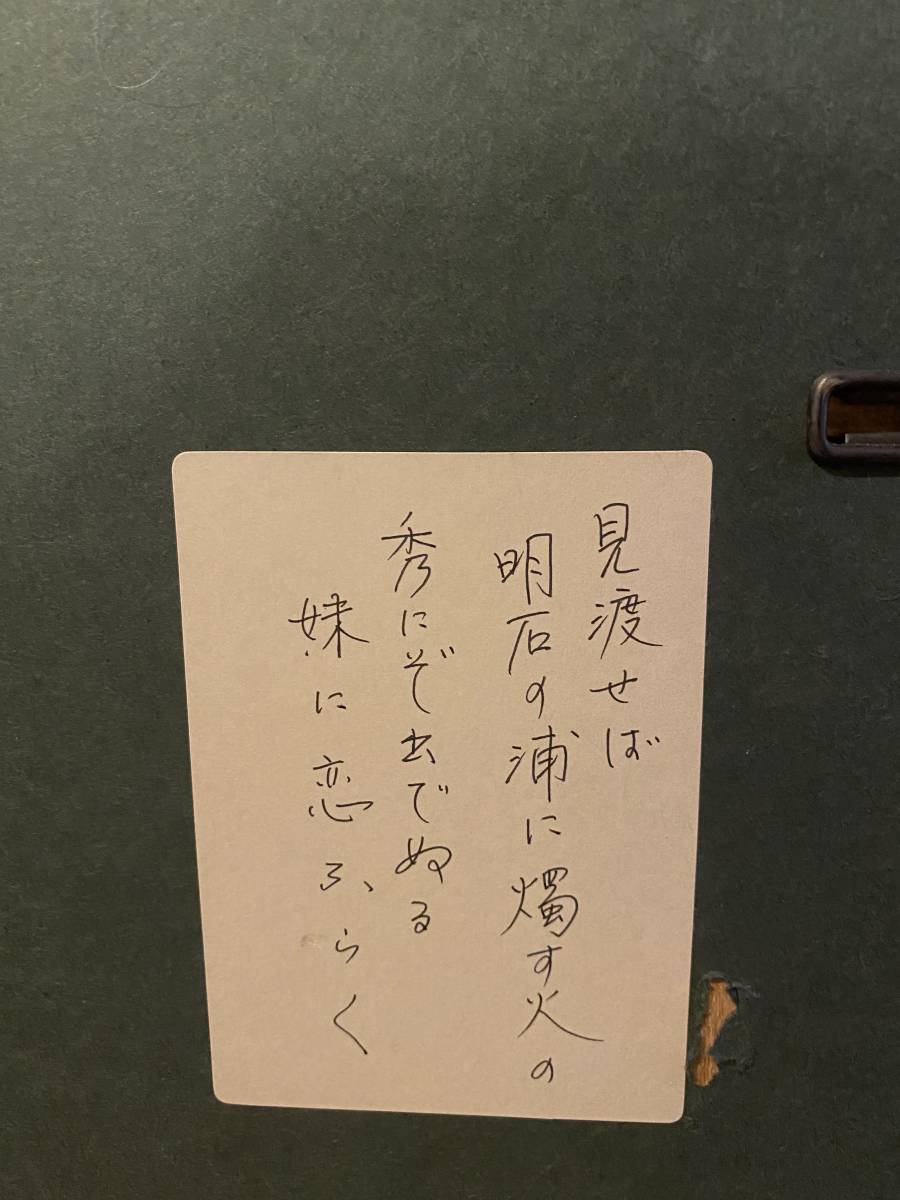 見渡せば
明石の浦に燭す火の
秀にぞ出でぬる
妹に恋ふらく